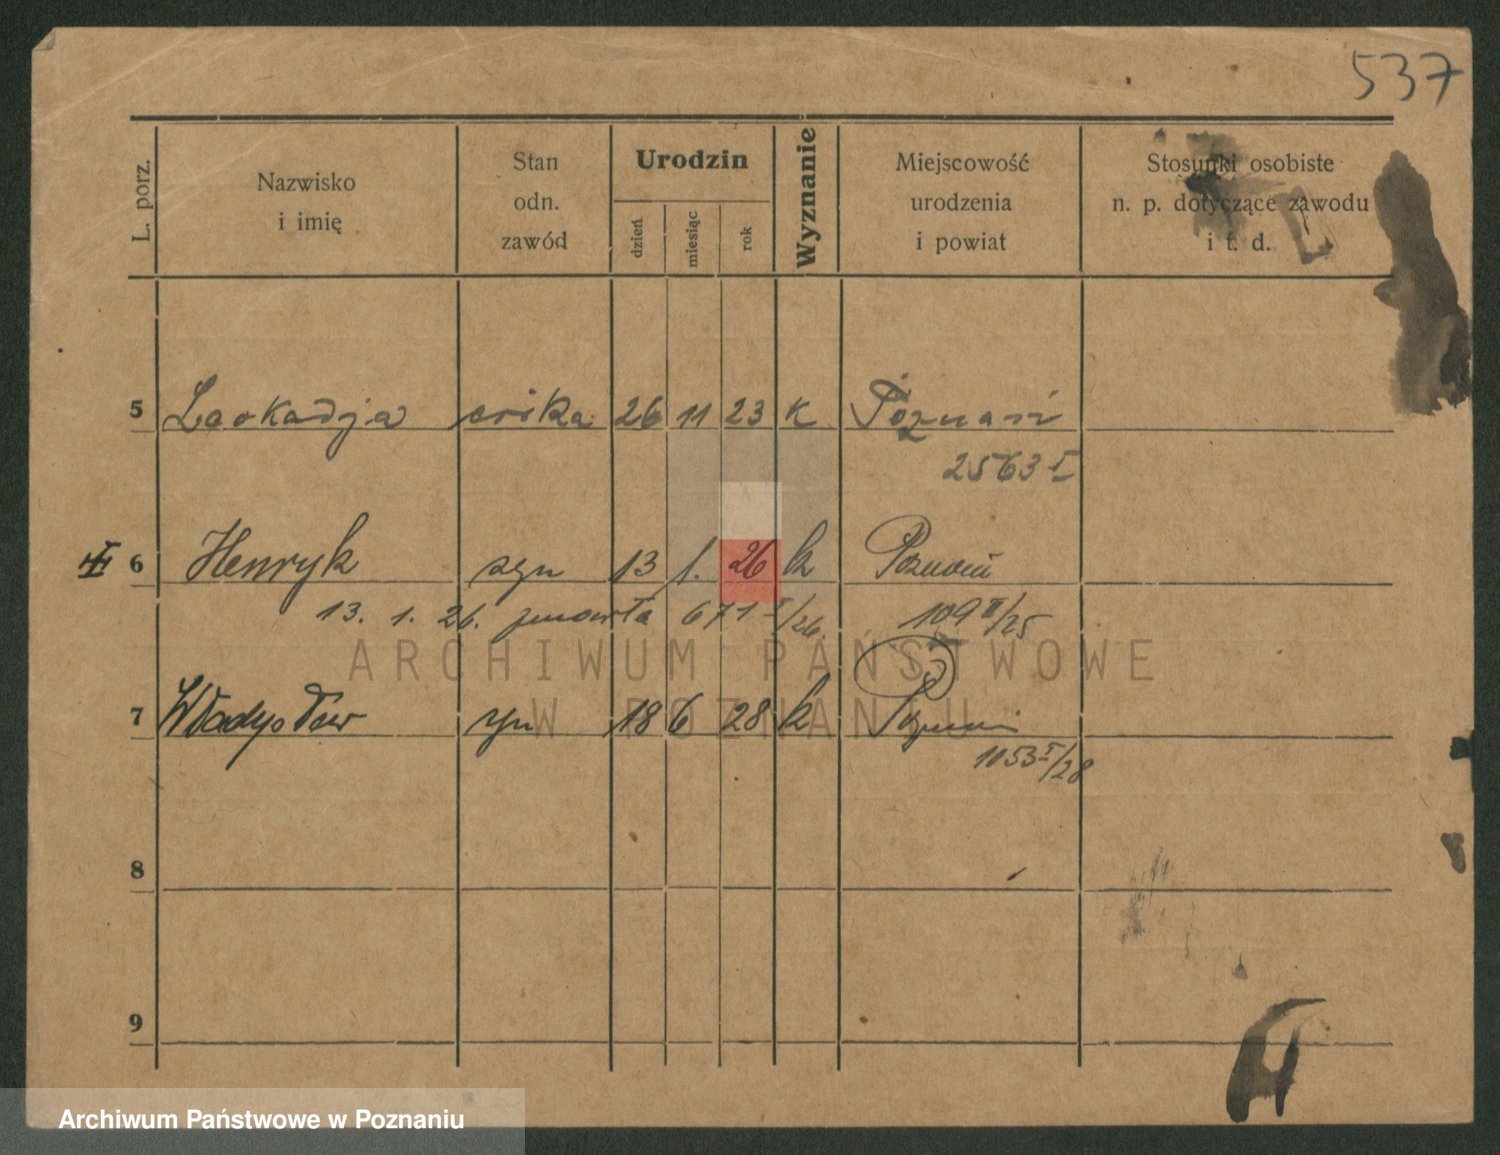 537
L. porz.
Nazwisko
i imię
Stan
odn.
zawód
Urodzin
dzień
miesiąc
rok
Wyznanie
Miejscowość
urodzenia
i powiat
Stosunki osobiste
n. p. dotyczące zawodu
i t. d.
5 Leokadja córka 26 11 23 K Poznań
2563 I
6 Henryk syn 13 1. 26 k Poznań
13. 1. 26. zmarła 671 I/26. 109 II/25
ARCHIWUM PAŃSTWOWE
W POZNANIU
7 Władysław syn 18 6 28 k Poznań
1053 I/28
8
9
Archiwum Państwowe w Poznaniu